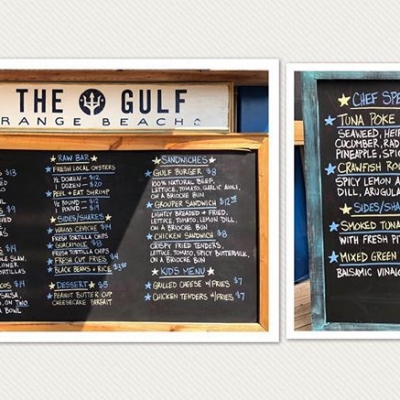 THE GULF
RANGE BEACH
RAW BAR
FRESH LOCAL OYSTERS
½ DOZEN - $12
1 DOZEN - $20
PEEL + EAT SHRIMP
½ POUND - $12
1 POUND -
SIDES/SHARES
WAHOO CEVICHE $14
FRESH TORTILLA CHIPS
GUACAMOLE $13
FRESH TORTILLA CHIPS
FRESH CUT FRIES $4
BLACK BEANS + RICE
DESSERT $5
PEANUT BUTTER CUP
CHEESECAKE PARFAIT
SANDWICHES
GULF BURGER $8
100% NATURAL BEEF,
LETTUCE, TOMATO, GARLIC AIOLI,
ON A BRIOCHE BUN
GROUPER SANDWICH $12
LIGHTLY BREADED + FRIED,
LETTUCE, TOMATO, LEMON DILL,
ON A BRIOCHE BUN
CHICKEN SANDWICH $8
CRISPY FRIED TENDERS,
LETTUCE, TOMATO, SPICY BUTTERMILK,
ON A BRIOCHE BUN
KIDS MENU
GRILLED CHEESE W/FRIES $7
CHICKEN TENDERS W/FRIES $7
CHEF SPE
TUNA POKE
SEAWEED, HEI
CUCUMBER, RAD
PINEAPPLE, SPIC
CRAWFISH RO
SPICY LEMON A
DILL, ARUGULA
SIDES/SHA
SMOKED TUNA
WITH FRESH PI
MIXED GREEN
BALSAMIC VINAIG